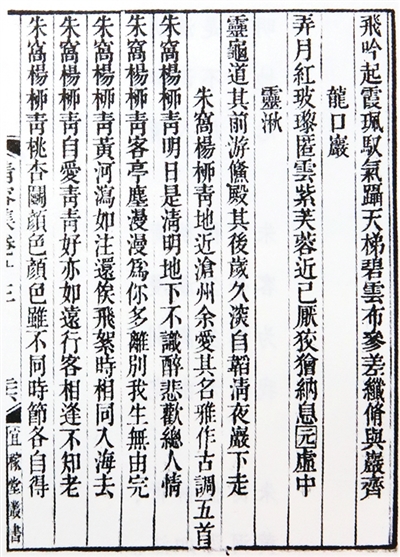 飛吟起霞珮馭氣躡天梯碧雲布參差纖脩與巖齊
龍口巖
弄月紅玻瓈匿雲紫芙蓉近已厭狡獪納息元虛中
靈湫
靈龜道其前游鯈殿其後歲久淡自韜淸夜巖下走
朱窩楊栁靑地近滄州余愛其名雅作古調五首
朱窩楊栁靑明日是淸明地下不識醉悲歡總人情
朱窩楊栁靑客亭塵漫漫爲你多離別我生無由完
朱窩楊栁靑黃河瀉如注還俟飛絮時相同入海去
朱窩楊栁靑自愛靑靑好亦如遠行客相逢不知老
朱窩楊栁靑桃杏鬭顏色顏色雖不同時節各自得
宜稼堂叢書